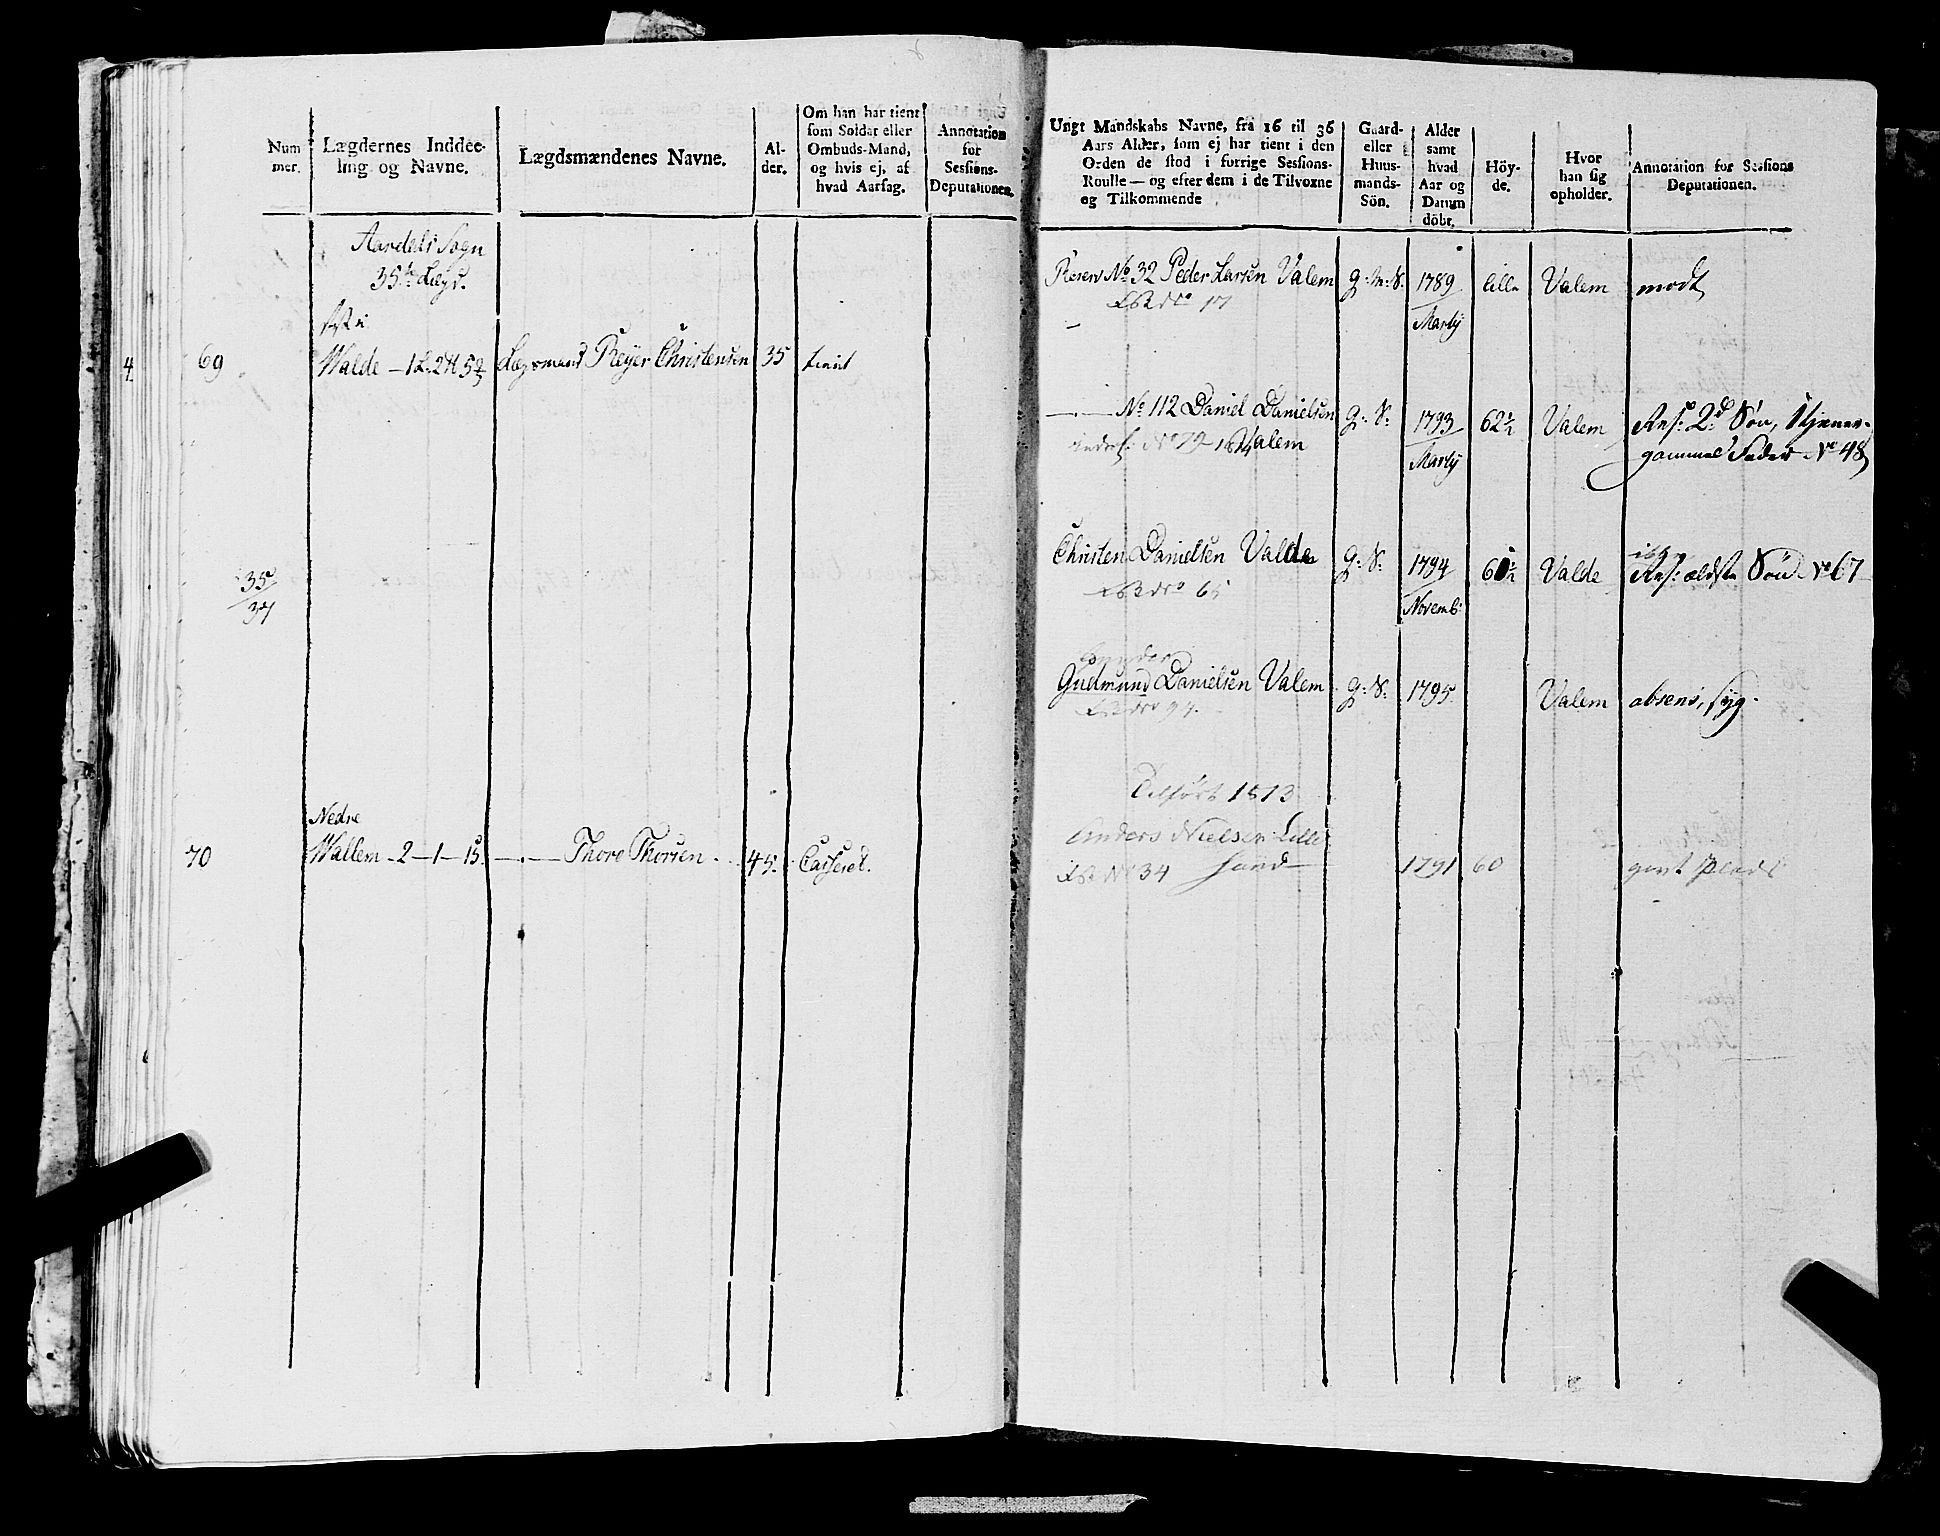 Num
mer.
Lægdernes Inddee-
ling og Navne.
Lægdsmændenes Navne.
Al-
der.
Om han har tient
som Soldat eller
Ombuds-Mand,
og hvis ej, af
hvad Aarsag.
Annotation
for
Sessions-
Deputationen.
Aardals Sogn
35te Lægd.
4
69
Walde - 1 L. 2 H 5
Lægsmand Reyer Christensen
35
tient
35/34
70
Nedre
Wallem - 2 - 1 - 15.
Thore Thorsen
45.
Casseret.
Ungt Mandskabs Navne, fra 16 til 36
Aars Alder, som ej har tient i den
Orden de stod i forrige Sessions-
Roulle — og efter dem i de Tilvoxne
og Tilkommende
Gaard-
eller
Huus-
mands-
Sön.
Alder
samt
hvad
Aar og
Datum
döbt.
Höy-
de.
Hvor
han sig
opholder.
Annotation for Sessions
Deputationen.
Reserv No 32 Peder Larsen Valem
G: M: S.
1789
lille
Valem
mödt
No 17
Martÿ
No 112 Daniel Danielsen
G: S:
1793
62½
Valem
Ans: 2d Søn,
Valem
Martÿ
gammel Fader No 48
Christen Danielsen Valde
G: S:
1794
Valde
Ans: ældste Søn No 67
No 65
Novemb:
Gudmund Danielsen Valem
G: S:
1795
Valem
absens, syg.
Tilført 1813
Anders Nielsen Lille
sand
No 34
1791
60